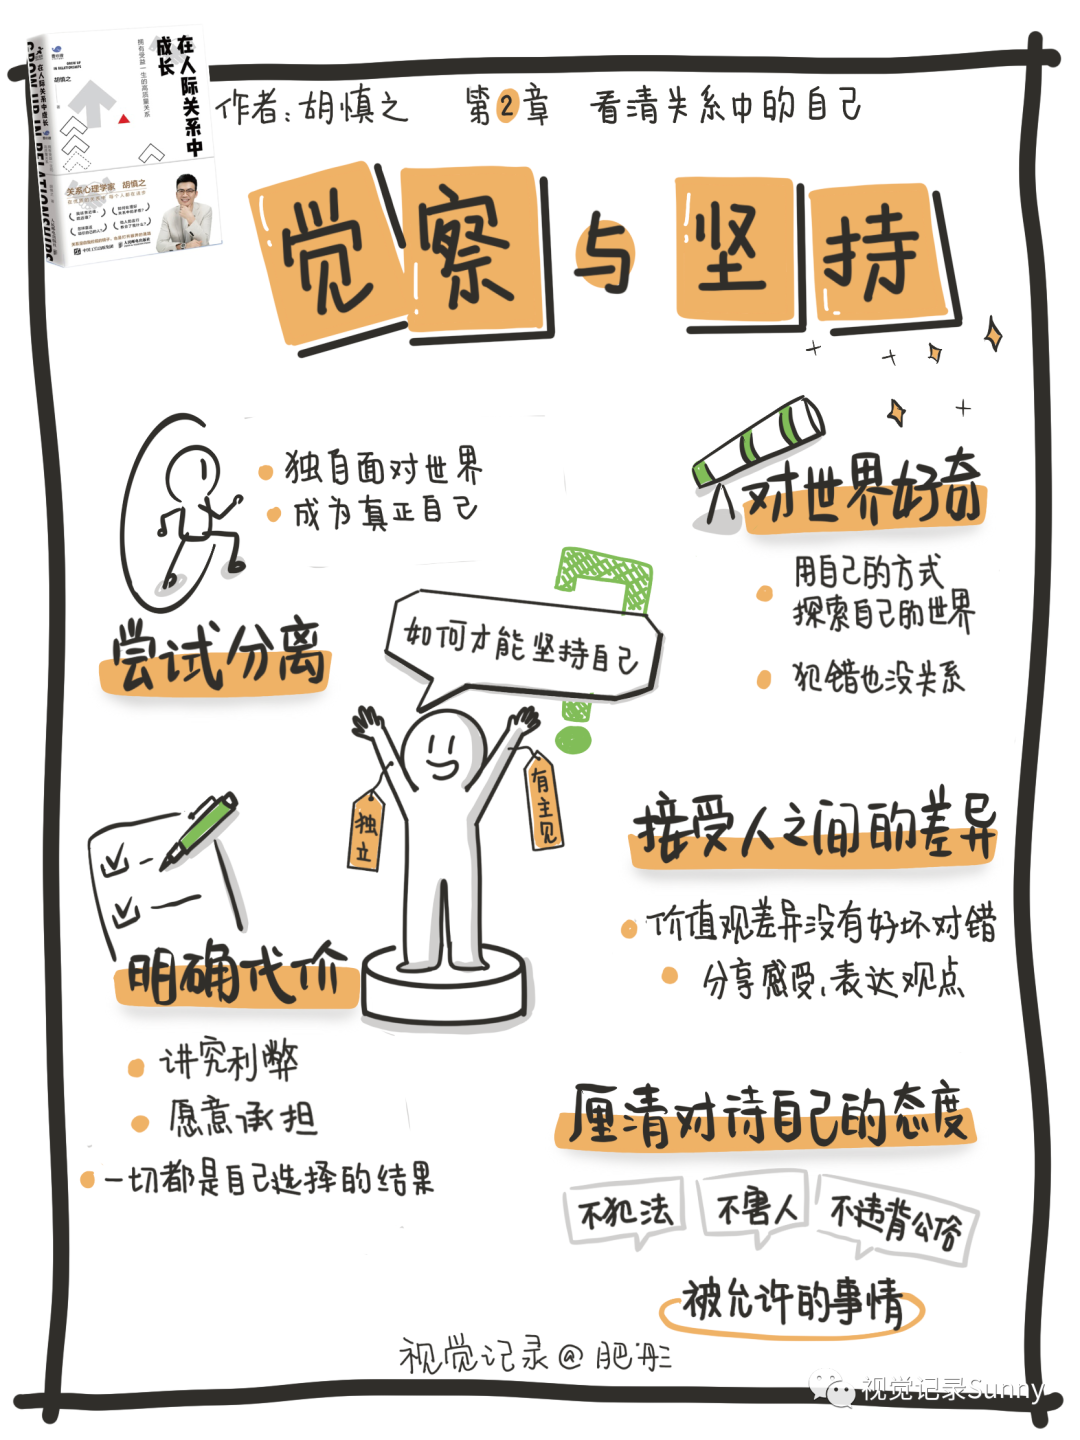 在人际关系中
成长
拥有受益一生的高质量关系
胡慎之
在人际关系中成长
GROW UP IN RELATIONSHIPS
关系心理学家 胡慎之
作者:胡慎之 第2章 看清关系中的自己
觉察与坚持
独自面对世界
成为真正自己
尝试分离
对世界好奇
用自己的方式
探索自己的世界
犯错也没关系
如何才能坚持自己
独立
有主见
接受人之间的差异
价值观差异没有好坏对错
分享感受、表达观点
明确代价
讲究利弊
愿意承担
一切都是自己选择的结果
厘清对待自己的态度
不犯法
不害人
不违背公俗
被允许的事情
视觉记录@肥彤
视觉记录Sunny